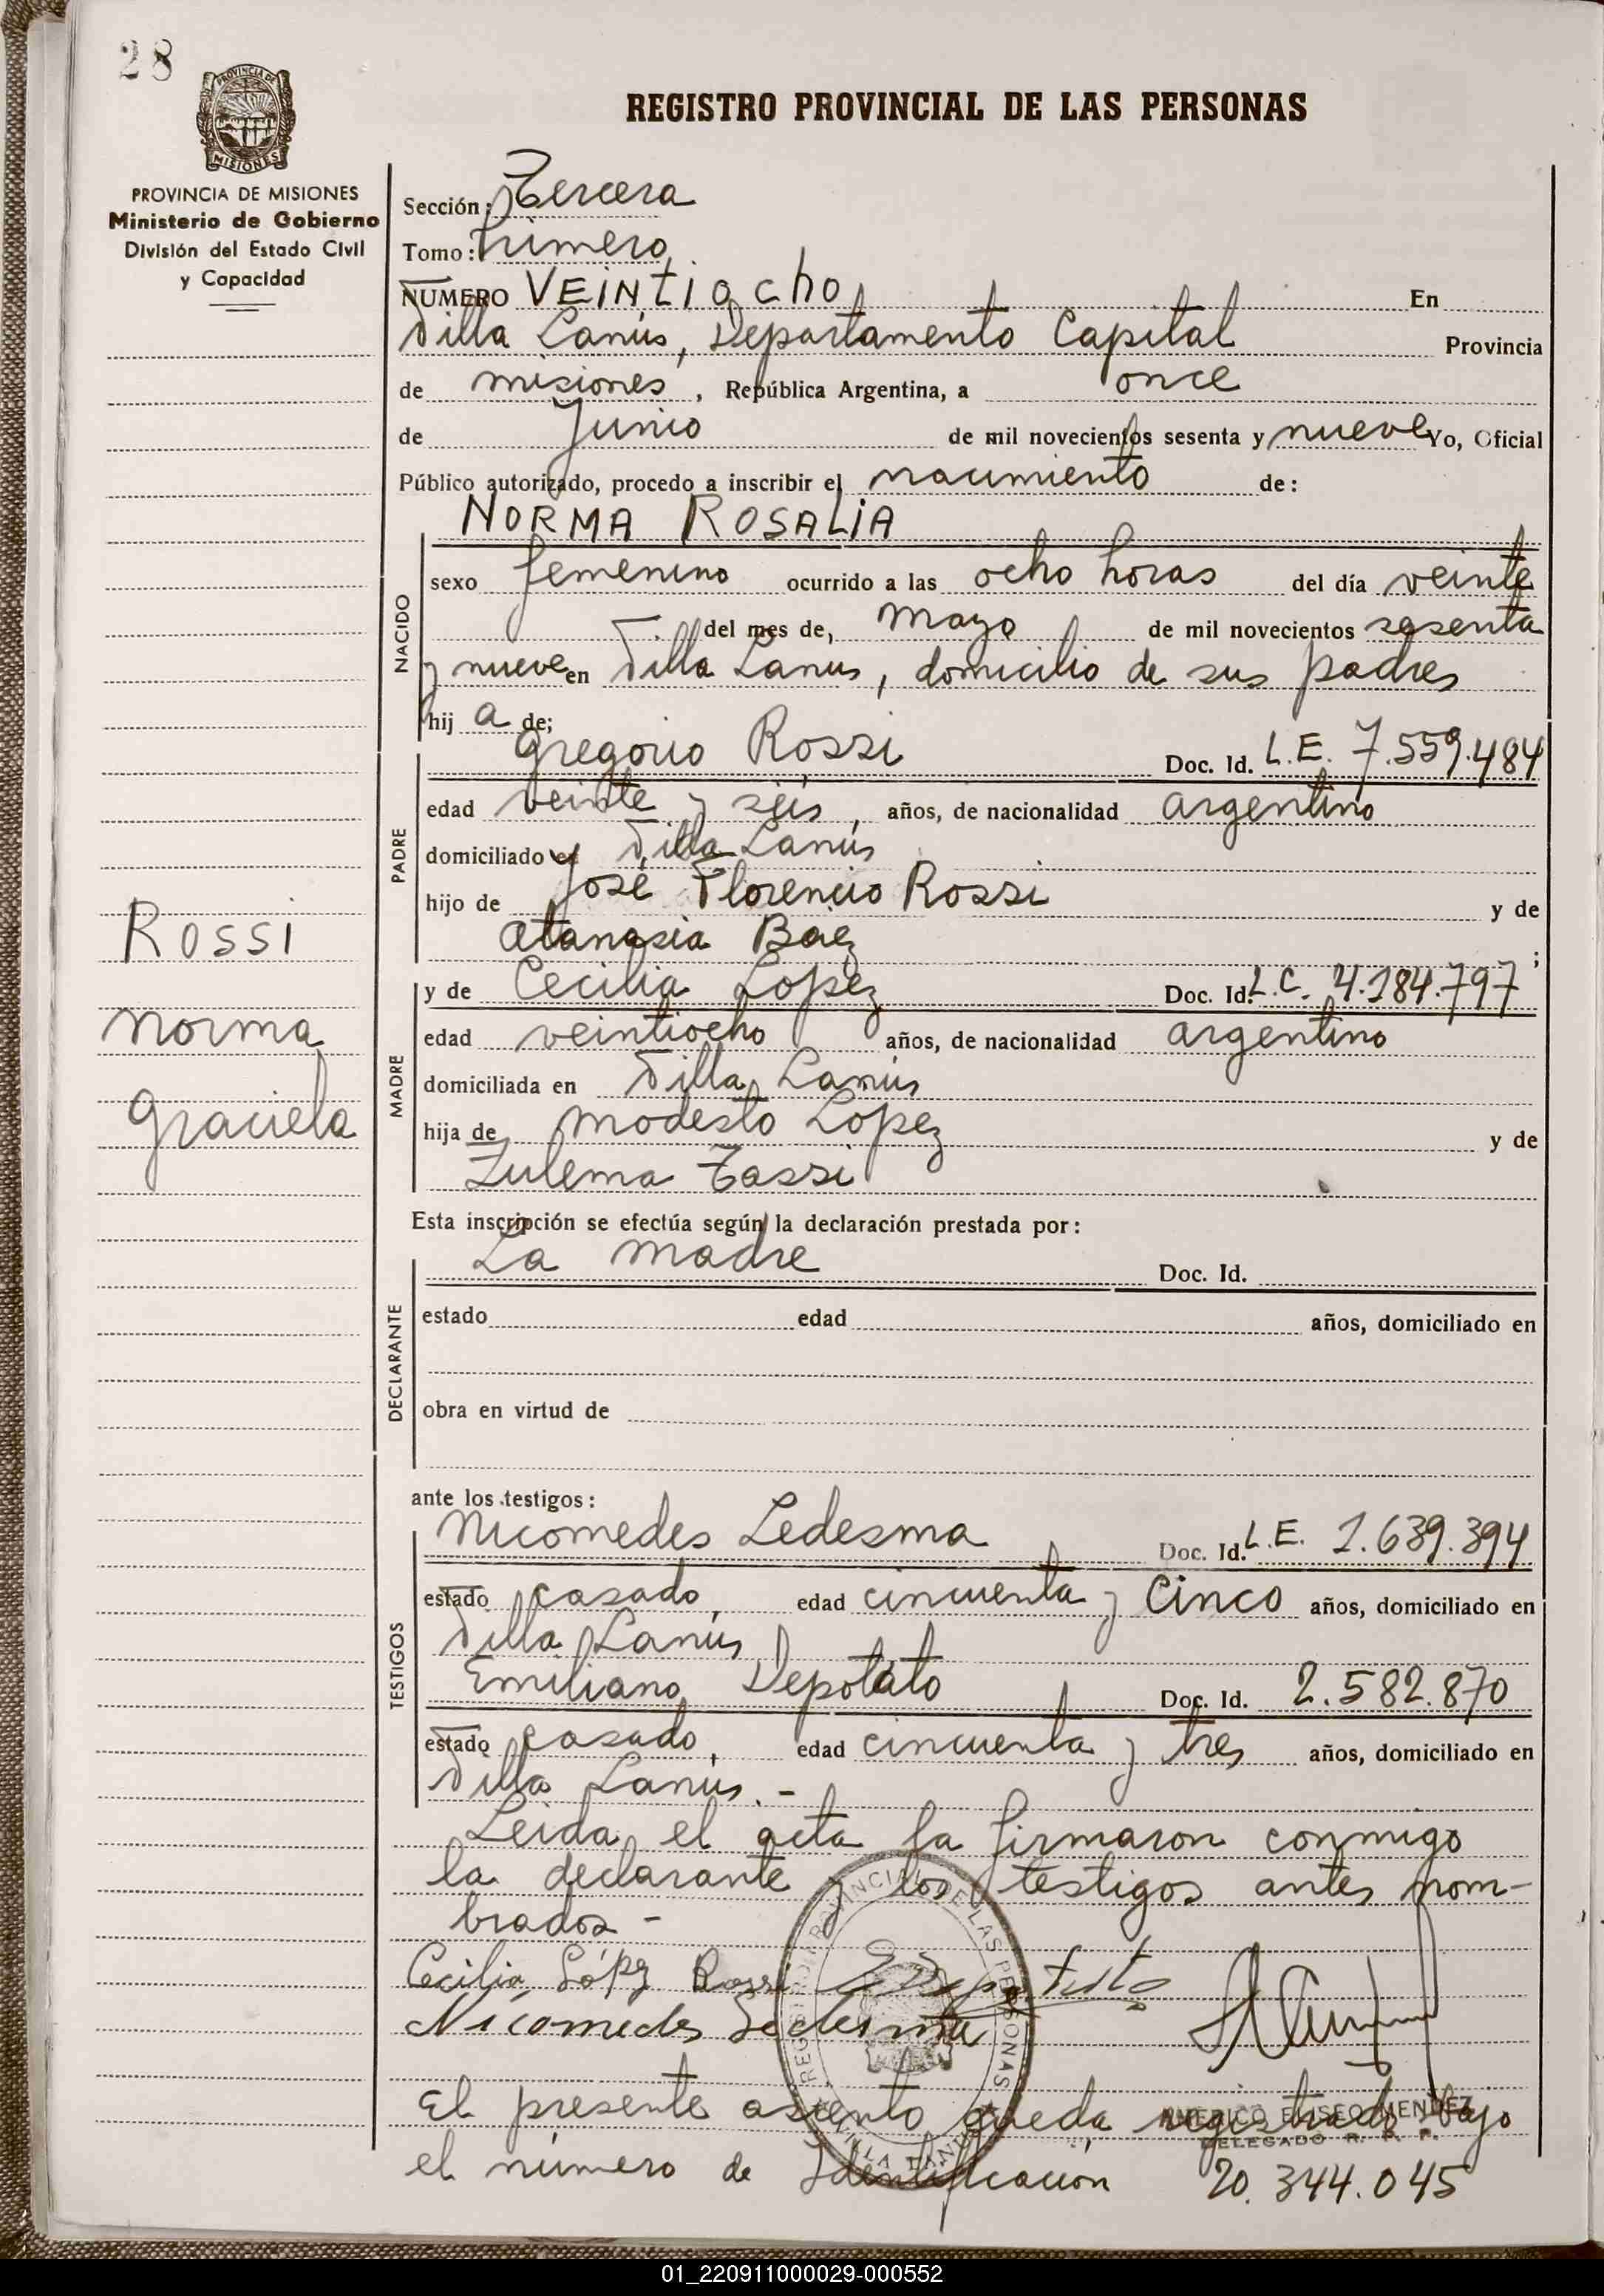 28
PROVINCIA DE
MISIONES
PROVINCIA DE MISIONES
Ministerio de Gobierno
División del Estado Civil
y Capacidad
REGISTRO PROVINCIAL DE LAS PERSONAS
Sección: Tercera
Tomo: Primero
NUMERO VEINTIOCHO En
Villa Lanús, Departamento Capital Provincia
de misiones, República Argentina, a once
de Junio de mil novecientos sesenta y nueve Yo, Oficial
Público autorizado, procedo a inscribir el nacimiento de:
NORMA ROSALIA
NACIDO
sexo femenino ocurrido a las ocho horas del día veinte
del mes de, mayo de mil novecientos sesenta
y nueve en Villa Lanus, domicilio de sus padres
hij a de;
PADRE
Gregorio Rossi Doc. Id. L.E. 7.559.484
edad veinte y seis, años, de nacionalidad argentino
domiciliado en Villa Lanús
hijo de José Florencio Rossi y de
Atanasia Baez ;
MADRE
y de Cecilia Lopez Doc. Id. L.C. 4.184.797
edad veintiocho años, de nacionalidad argentino
domiciliada en Villa Lanús
hija de modesto Lopez y de
Zulema Tassi
Rossi
Norma
Graciela
Esta inscripción se efectúa según la declaración prestada por:
DECLARANTE
La madre Doc. Id.
estado edad años, domiciliado en
obra en virtud de
ante los testigos:
TESTIGOS
Nicomedes Ledesma Doc. Id. L.E. 1.639.394
estado casado, edad cincuenta y cinco años, domiciliado en
Villa Lanús
Emiliano Depotato Doc. Id. 2.582.870
estado casado, edad cincuenta y tres años, domiciliado en
Villa Lanús.-
Leida el acta la firmaron conmigo
la declarante y los testigos antes nom-
brados-
Cecilia López Rossi
Nicomedes Ledesma
REGISTRO PROVINCIAL DE LAS PERSONAS
VILLA LANUS
AMERICO ELISEO MENDEZ
DELEGADO R. P. P.
El presente asiento queda registrado bajo
el número de Identificación 20.344.045
01_220911000029-000552